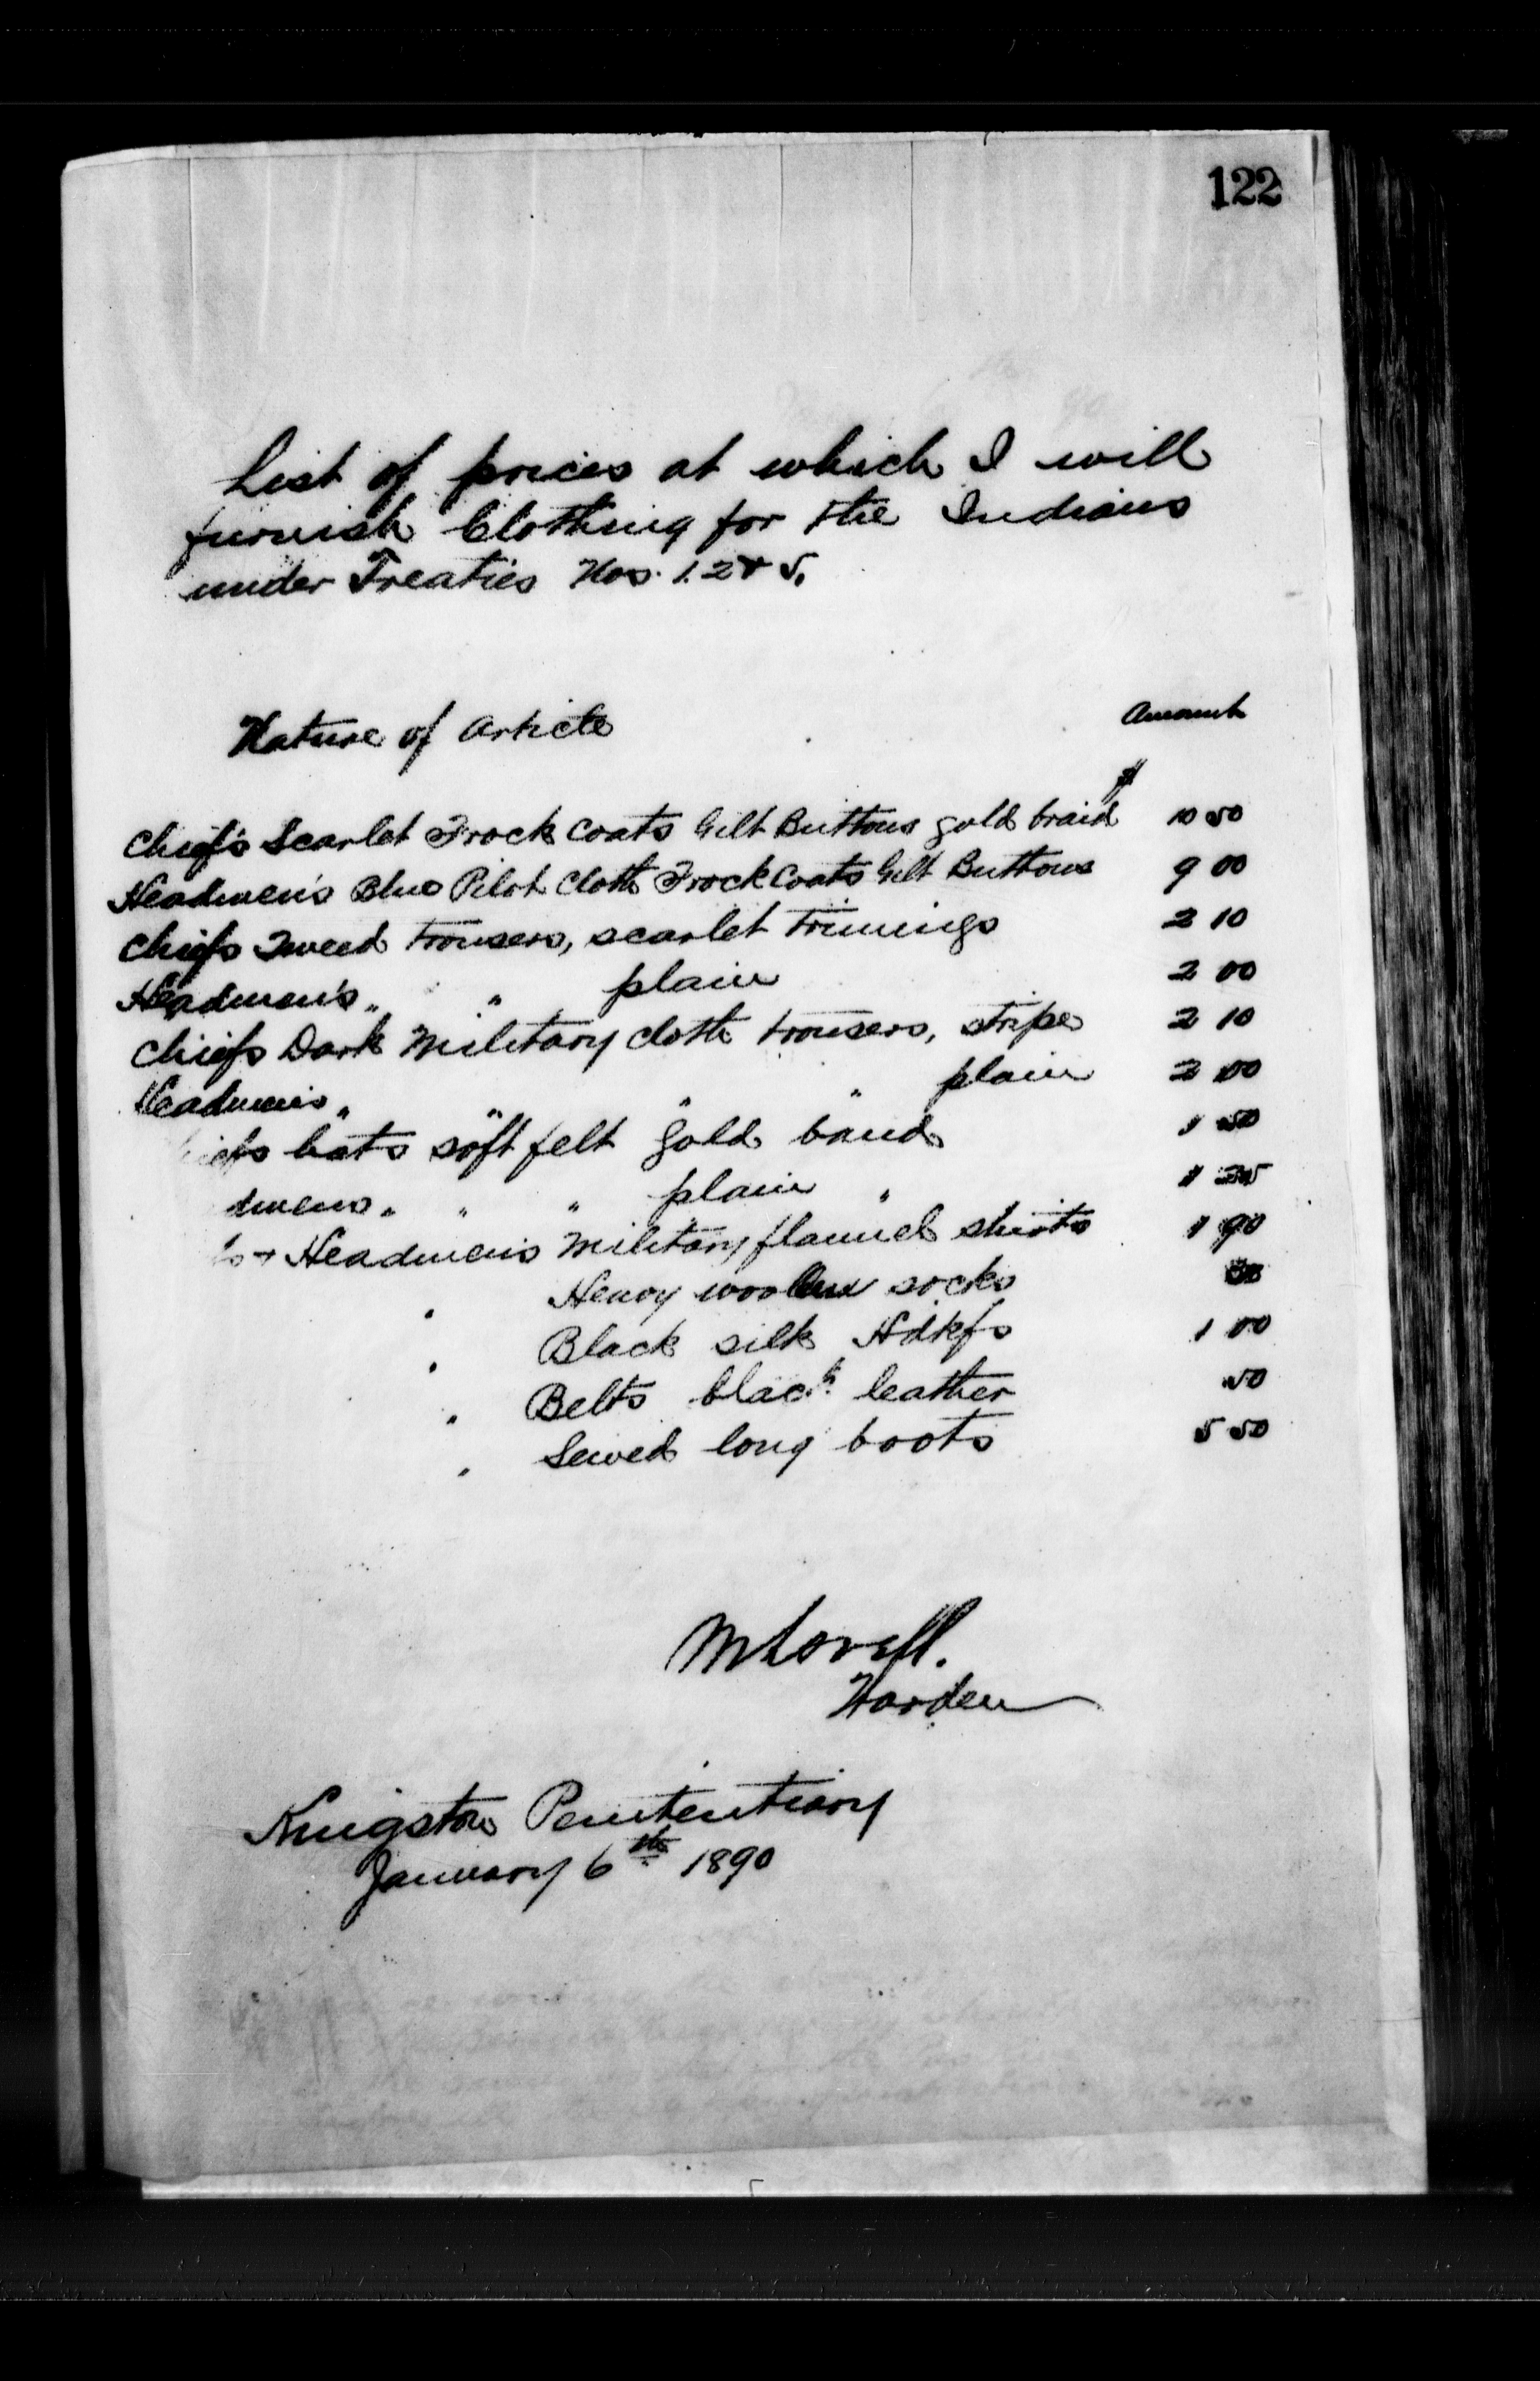 122
List of prices at which I will
furnish Clothing for the Indians
under Treaties Nos. 1. 2 & 5.
Nature of Article Amount
$
Chief's Scarlet Frock Coats Gilt Buttons gold braid 10 50
Headmen's Blue Pilot Cloth Frock Coats Gilt Buttons 9 00
Chiefs Tweed trousers, scarlet trimings 2 10
Headmen's " " plain 2 00
Chiefs Dark Military cloth trousers, stripe 2 10
Headmen's " " " " plain 2 00
iefs hats soft felt gold band 1 50
dmens " " " plain " 1 25
s & Headmen's Military flannel shirts 1 90
" Heavy woollen socks
" Black silk Hdkfs 1 00
" Belts black leather 50
" Sewed long boots 5 50
M Lavell.
Warden
Kingston Penitentiary
January 6th 1890